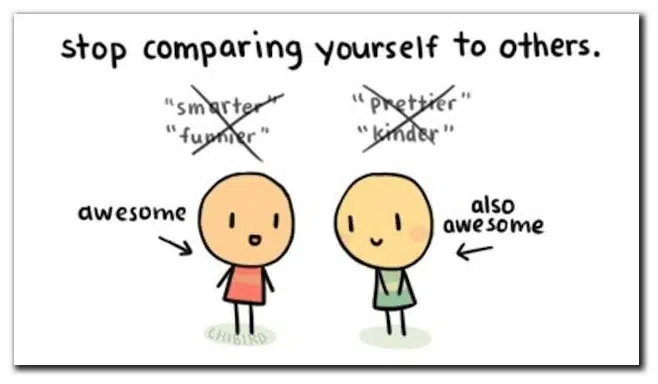 stop comparing yourself to others.
"smarter"
"funnier"
"prettier"
"kinder"
awesome
also
awesome
CHIBIRD